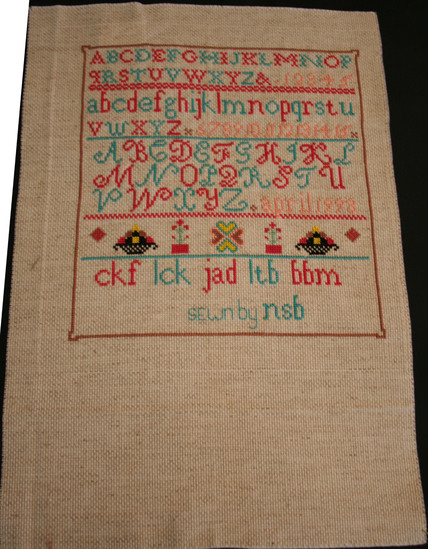 ABCDEFGHIJKLMNOP
QRSTUVWXYZ& 12345
abcdefghijklmnopqrstu
vwxyz
ABCDEFGHIJKL
MNOPQRSTU
VWXYZ. april 1998
ckf lck jad ltb bbm
sewn by nsb